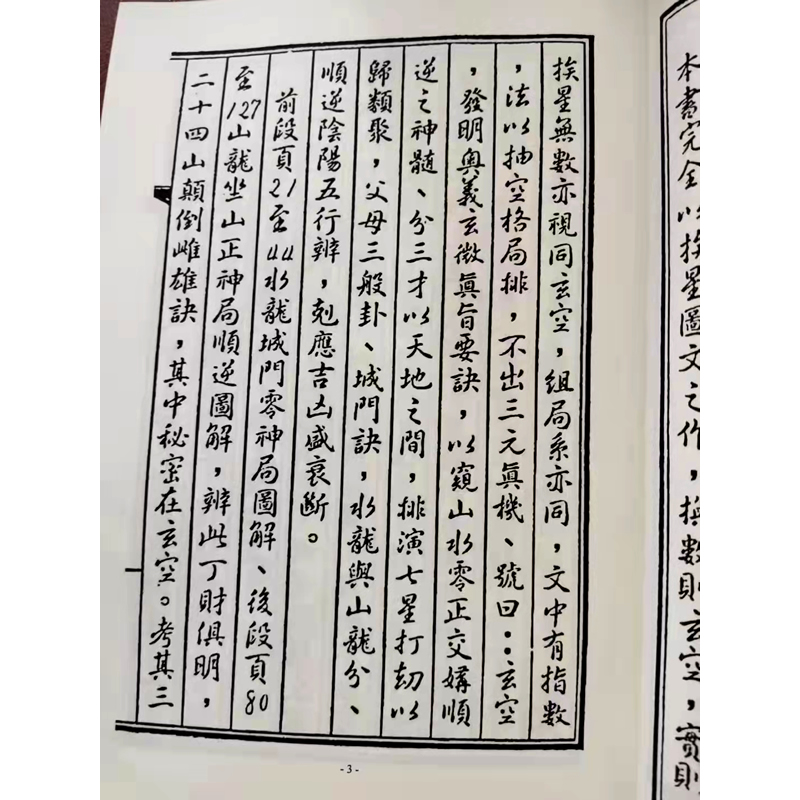 本書完全以挨星圖文之作，換數則玄空，實則
挨星無數亦視同玄空，組局系亦同，文中有指數
，法以抽空格局排，不出三元眞機、號曰：玄空
，發明奧義玄微眞旨要訣，以窺山水零正交媾順
逆之神髓、分三才以天地之間，排演七星打刼以
歸類聚，父母三般卦、城門訣，水龍與山龍分、
順逆陰陽五行辨，剋應吉凶盛衰斷。
前段頁21至44水龍城門零神局圖解、後段頁80
至127山龍坐山正神局順逆圖解，辨此丁財俱明，
二十四山顛倒雌雄訣，其中秘密在玄空。考其三
- 3 -